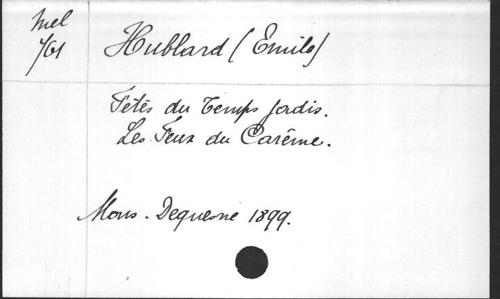 Mel
761
Hublard (Emile)
Fêtes du Temps Jadis.
Les Feux du Carême.
Mons - Dequesne 1899.